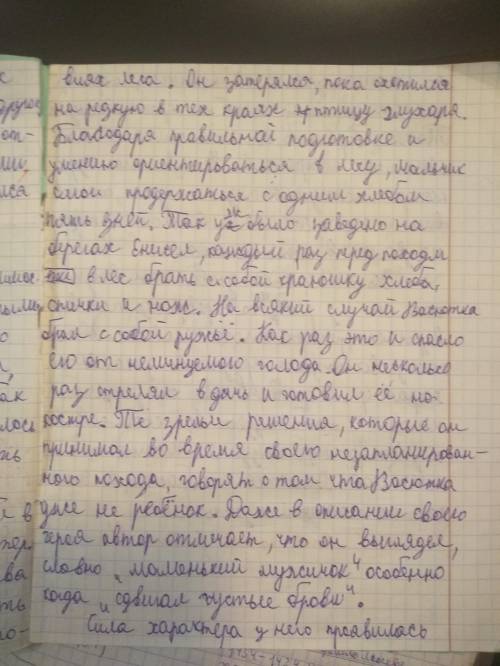 виях леса. Он затерялся, пока охотился
на редкую в тех краях птицу глухаря.
Благодаря правильной подготовке и
умению ориентироваться в лесу, мальчик
смог продержаться с одним хлебом
пять дней. Так уж было заведено на
берегах Енисея, каждый раз перед походом
в лес брать с собой краюшку хлеба,
спички и нож. На всякий случай Васютка
брал с собой ружьё. Как раз это и спасло
его от неминуемого голода. Он несколько
раз стрелял в дичь и готовил её на
костре. Те зрелые решения, которые он
принимал во время своего незапланирован-
ного похода, говорят о том что Васютка
уже не ребёнок. Даже в описании своего
героя автор отмечает, что он выглядел,
словно „маленький мужичок" особенно
когда „сдвигал густые брови".
Сила характера у него проявилась